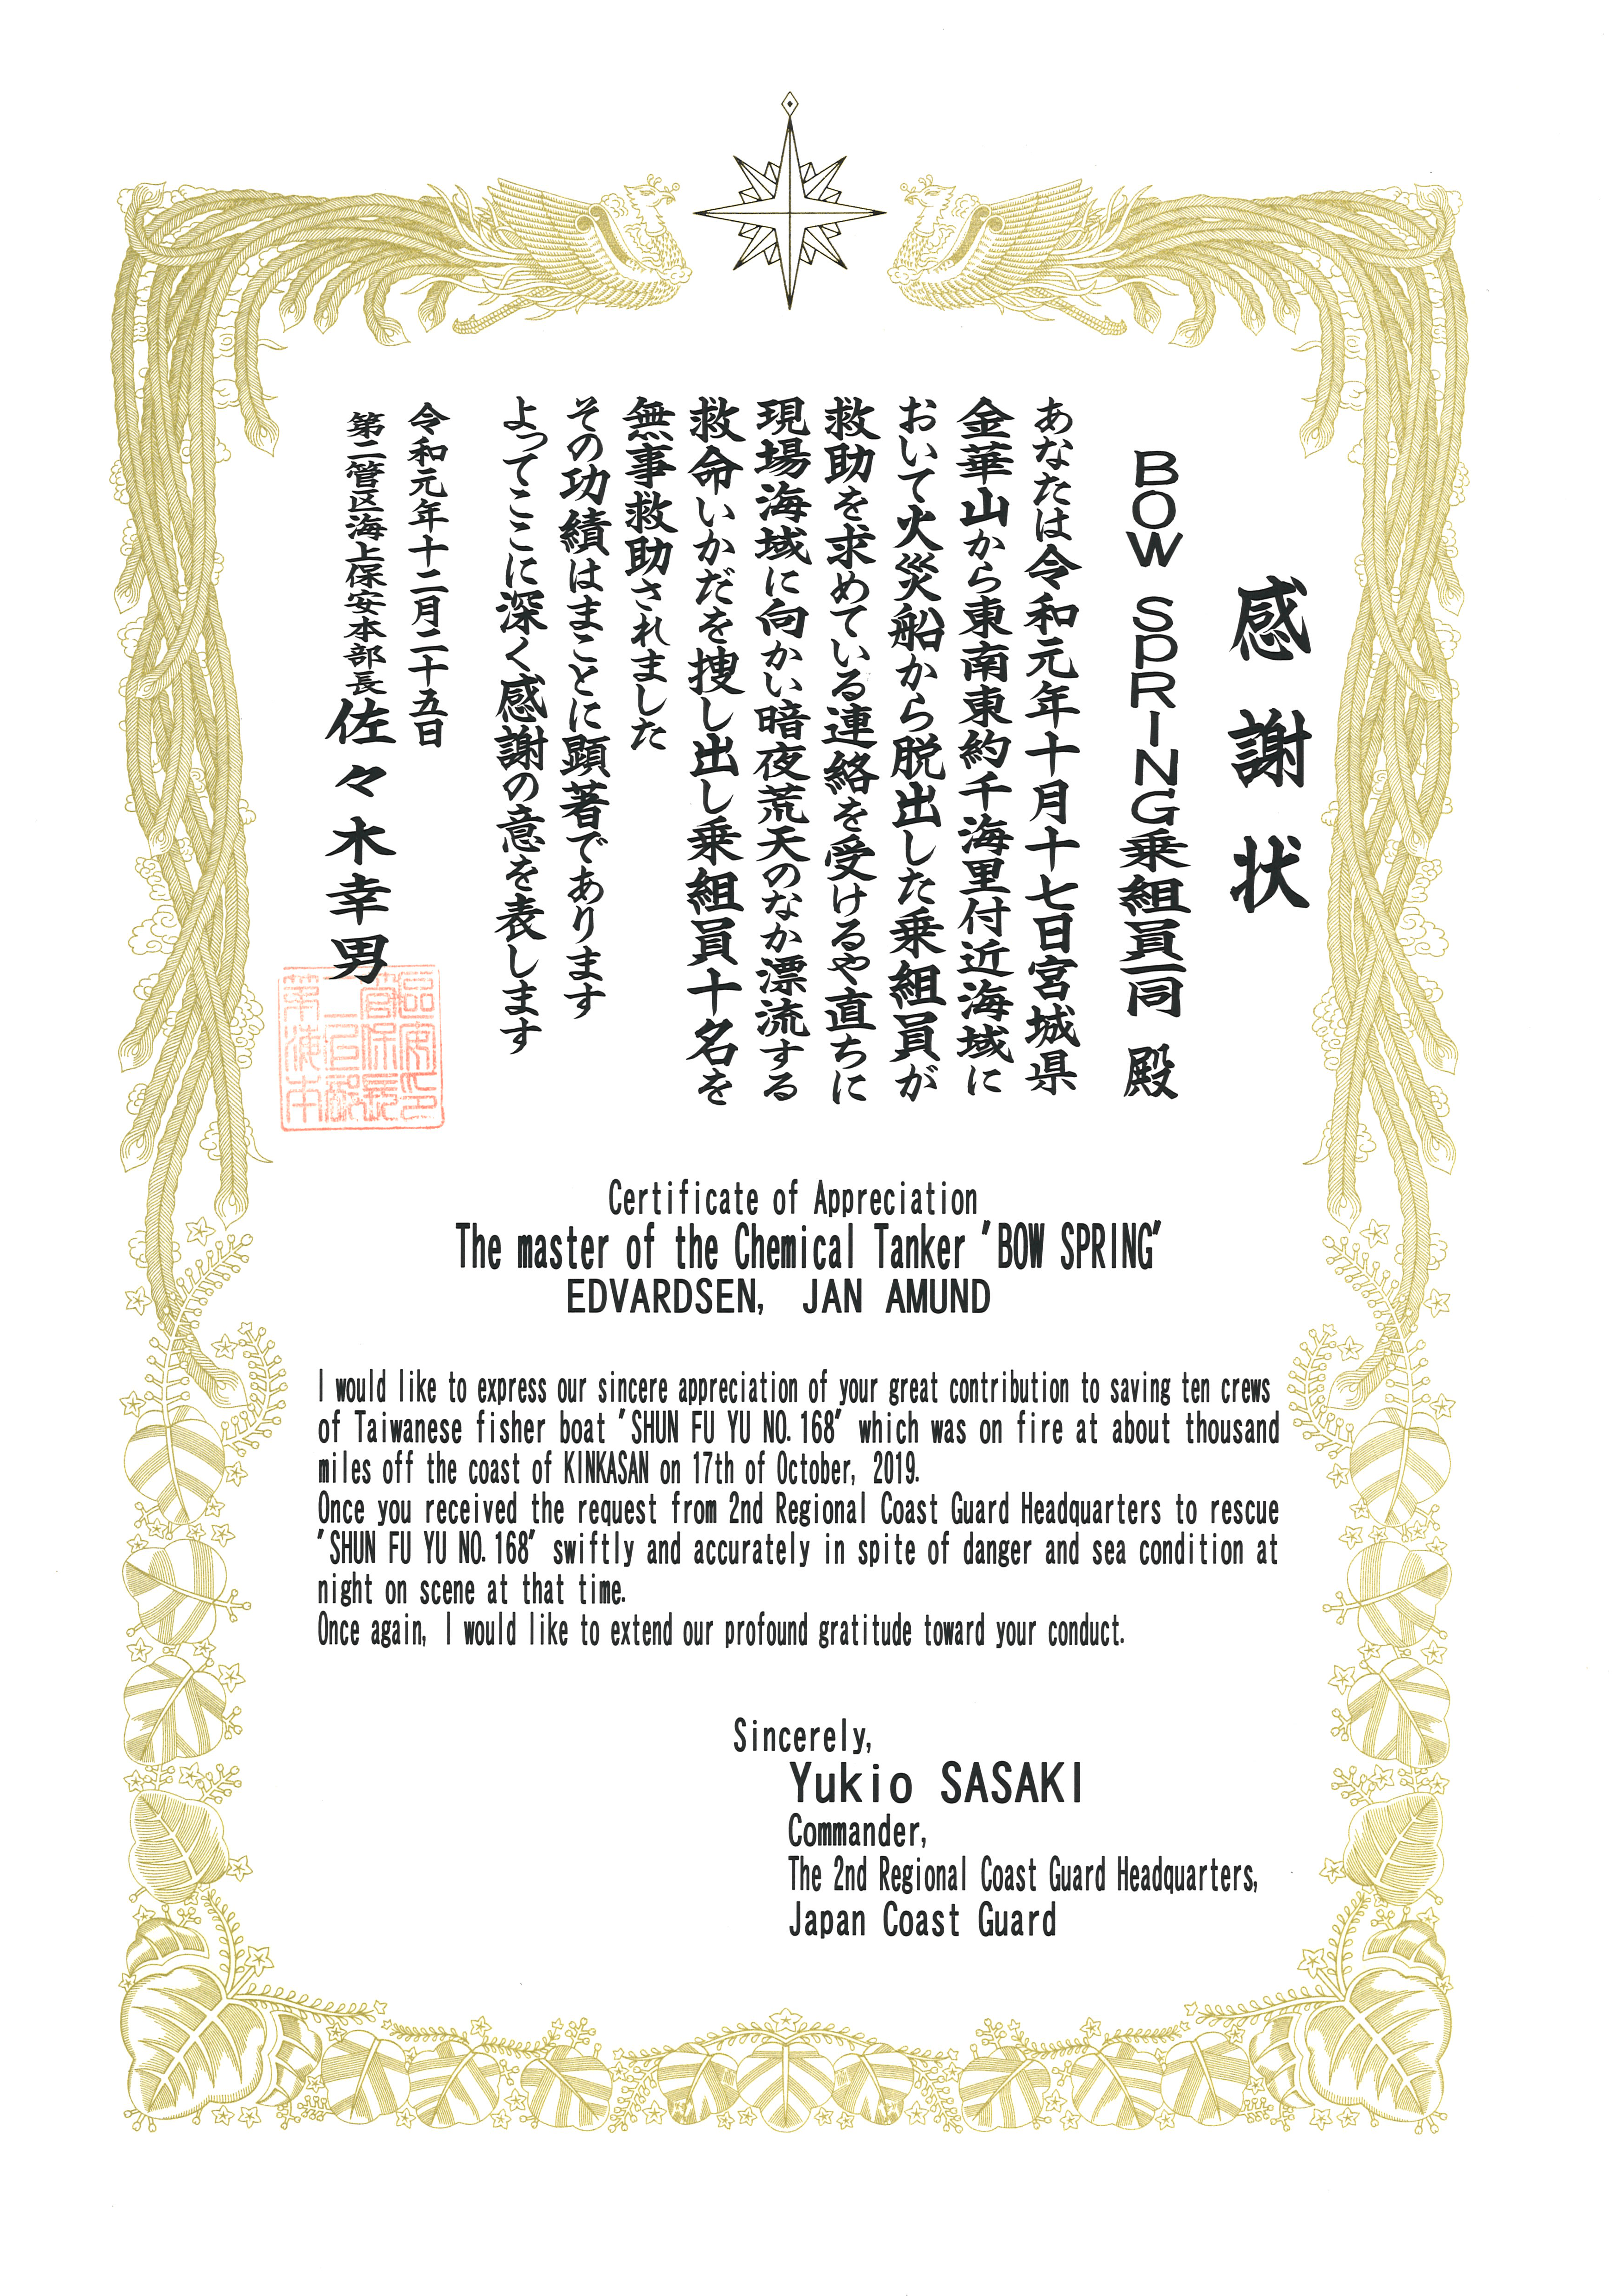 感謝状
BOW SPRING乗組員一同 殿
あなたは令和元年十月十七日宮城県
金華山から東南東約千海里付近海域に
おいて火災船から脱出した乗組員が
救助を求めている連絡を受けるや直ちに
現場海域に向かい暗夜荒天のなか漂流する
救命いかだを捜し出し乗組員十名を
無事救助されました
その功績はまことに顕著であります
よってここに深く感謝の意を表します
令和元年十二月二十五日
第二管区海上保安本部長 佐々木幸男
Certificate of Appreciation
The master of the Chemical Tanker "BOW SPRING"
EDVARDSEN, JAN AMUND
I would like to express our sincere appreciation of your great contribution to saving ten crews
of Taiwanese fisher boat "SHUN FU YU NO.168" which was on fire at about thousand
miles off the coast of KINKASAN on 17th of October, 2019.
Once you received the request from 2nd Regional Coast Guard Headquarters to rescue
"SHUN FU YU NO.168" swiftly and accurately in spite of danger and sea condition at
night on scene at that time.
Once again, I would like to extend our profound gratitude toward your conduct.
Sincerely,
Yukio SASAKI
Commander,
The 2nd Regional Coast Guard Headquarters,
Japan Coast Guard